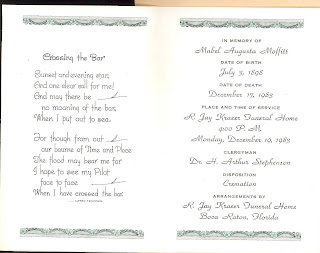 Crossing the Bar
Sunset and evening star,
And one clear call for me!
And may there be
no moaning of the bar,
When I put out to sea.
For though from out
our bourne of Time and Place
The flood may bear me far
I hope to see my Pilot
face to face
When I have crossed the bar.
IN MEMORY OF
Mabel Augusta Moffitt
DATE OF BIRTH
July 7, 1898
DATE OF DEATH
December 15, 1983
PLACE AND TIME OF SERVICE
R. Jay Kraeer Funeral Home
4:00 P. M.
Monday, December 19, 1983
CLERGYMAN
Dr. H. Arthur Stephenson
DISPOSITION
Cremation
ARRANGEMENTS BY
R. Jay Kraeer Funeral Home
Boca Raton, Florida